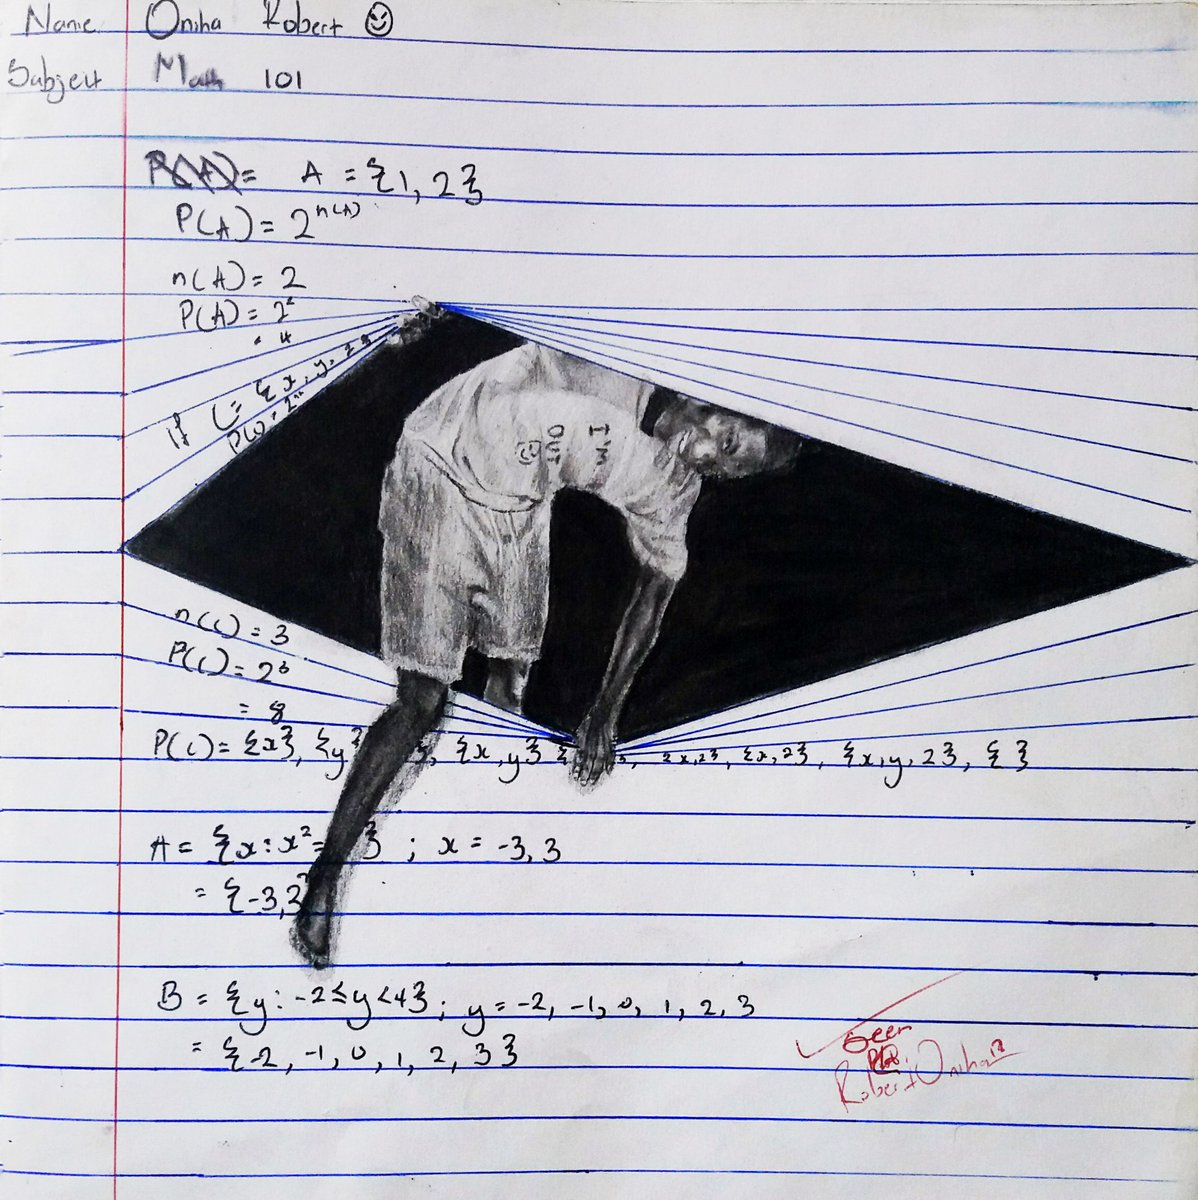 Name Oniha Robert
Subject Math 101
P(A) = A = {1, 2}
P(A) = 2^n(A)
n(A) = 2
P(A) = 2²
= 4
If C = {x, y, 2}
P(C) = 2ⁿ
I'M
OUT
n(C) = 3
P(C) = 2³
= 8
P(C) = {x}, {y}, {x, y}, {x, 2}, {x, y, 2}, { }
A = {x : x² = } ; x = -3, 3
= {-3, 3
B = {y : -2 ≤ y < 4} ; y = -2, -1, 0, 1, 2, 3
= {-2, -1, 0, 1, 2, 3}
Seen
Robert Oniha